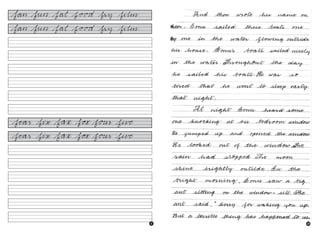 fan fun fat food fry film
fan fun fat food fry film
four fix fax for four five
four fix fax for four five
And then wrote his name on
them. Omu sailed these boats one
by one in the water flowing outside
his house. Omu's boats sailed nicely
in the water. Throughout the day
he sailed his boats. He was so
tired that he went to sleep early
that night.
At night Omu heard some
one knocking at his bedroom window.
He jumped up and opened the window.
He looked out of the window. The
rain had stopped. The moon
shine brightly outside. In the
bright morning, Omu saw a big
ant sitting on the window-sill. The
ant said, "Sorry for waking you up.
But a terrible thing has happened to us.